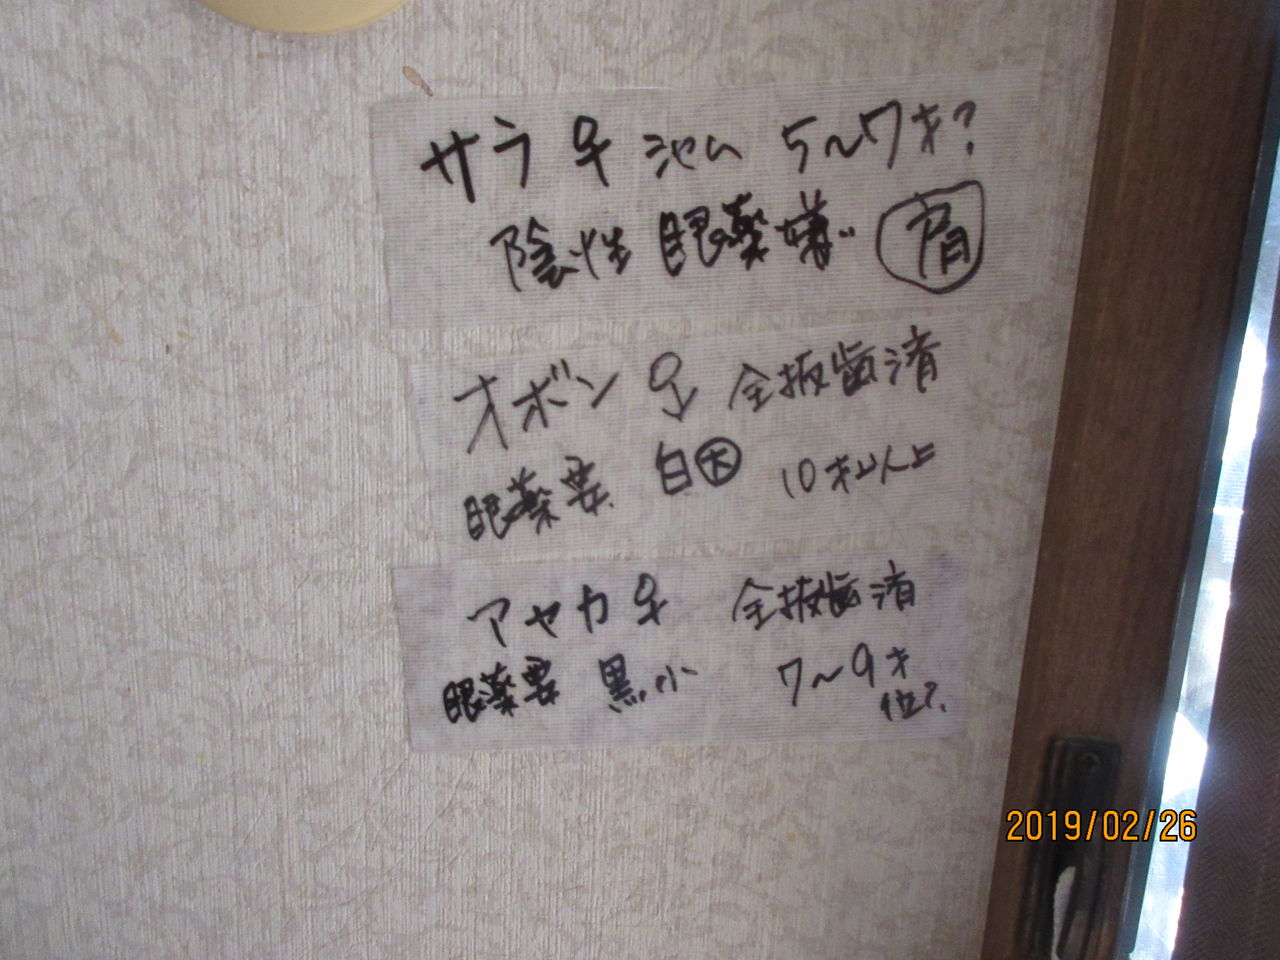 サラ ♀ シャム 5~7才?
陰性 眼薬
オボン ♀ 全抜歯済
眼薬要 白大 10才以上
アヤカ ♀ 全抜歯済
眼薬要 黒小 7~9才
位?
2019/02/26